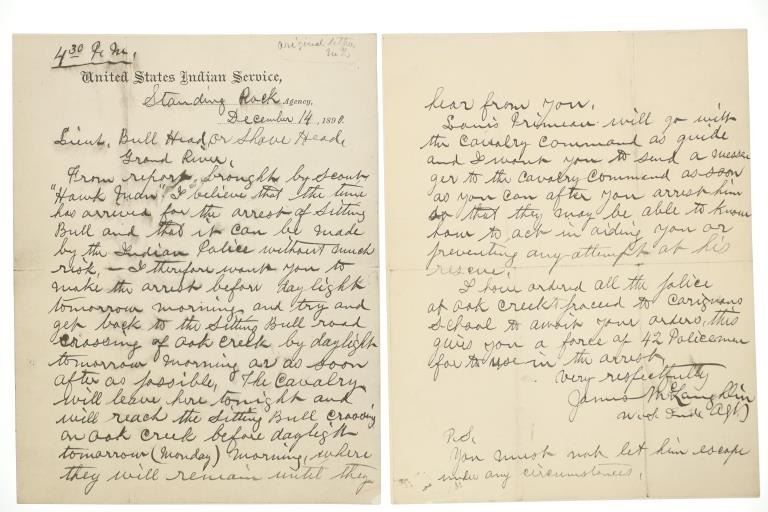 4 30 P. M.
original letter
United States Indian Service,
Standing Rock Agency,
December 14, 1890.
Lieut. Bull Head, or Shave Head,
Grand River,
From report brought by Scout
"Hawk Man" I believe that the time
has arrived for the arrest of Sitting
Bull and that it can be made
by the Indian Police without much
risk, - I therefore want you to
make the arrest before daylight
tomorrow morning and try and
get back to the Sitting Bull road
crossing of Oak Creek by daylight
tomorrow morning or as soon
after as possible, The Cavalry
will leave here tonight and
will reach the Sitting Bull crossing
on Oak Creek before daylight
tomorrow (Monday) morning, where
they will remain until they
hear from you.
Louis Primeau will go with
the Cavalry command as guide
and I want you to send a messen
ger to the Cavalry Command as soon
as you can after you arrest him
so that they may be able to know
how to act in aiding you or
preventing any attempt at his
rescue.
I have ordered all the police
at Oak Creek to proceed to Carignans
School to await your orders, this
gives you a force of 42 Policemen
for to use in the arrest.
Very respectfully
James McLaughlin
US Ind Agt.
P.S.
You must not let him escape
under any circumstances.